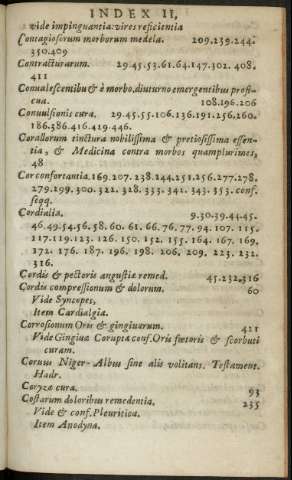 INDEX II,
vide impinguantia: vires reficientia
Contagiosorum morborum medela. 209.239.244.
350.409
Contracturarum. 29.45.53.61.64.147.302.408.
411
Convalescentibus è morbo, diuturno emergentibus profi-
cua. 108.196.206
Convulsionis cura. 29.45.55.106.136.191.256.260.
186.386.416.419.446.
Corallorum tinctura nobilissima & pretiosissima essen-
tia, & Medicina contra morbos quamplurimes,
48
Cor confortantia. 169.207.238.244.251.256.277.278.
279.299.300.322.328.333.341.343.353. conf.
seqq.
Cordialia. 9.30.39.44.45.
46.49.54.56.58.60.61.66.76.77.94.107.115.
117.119.123.126.150.152.155.164.167.169,
172.176.187.196.198.206,209.223.232.
316.
Cordis & pectoris angustiæ remed. 45.232.316
Cordis compressionum & dolorum. 60
Vide Syncopes,
Item Cardialgia.
Corrosionum Oris & gingivarum. 421
Vide Gingiva Corupta conf. Oris fœtoris & scorbuti
curam.
Corvus Niger-Albus sine alis volitans. Testament.
Hadr.
Coryzæ cura. 93
Costarum doloribus remedentia. 235
Vide & conf. Pleuritica.
Item Anodyna.